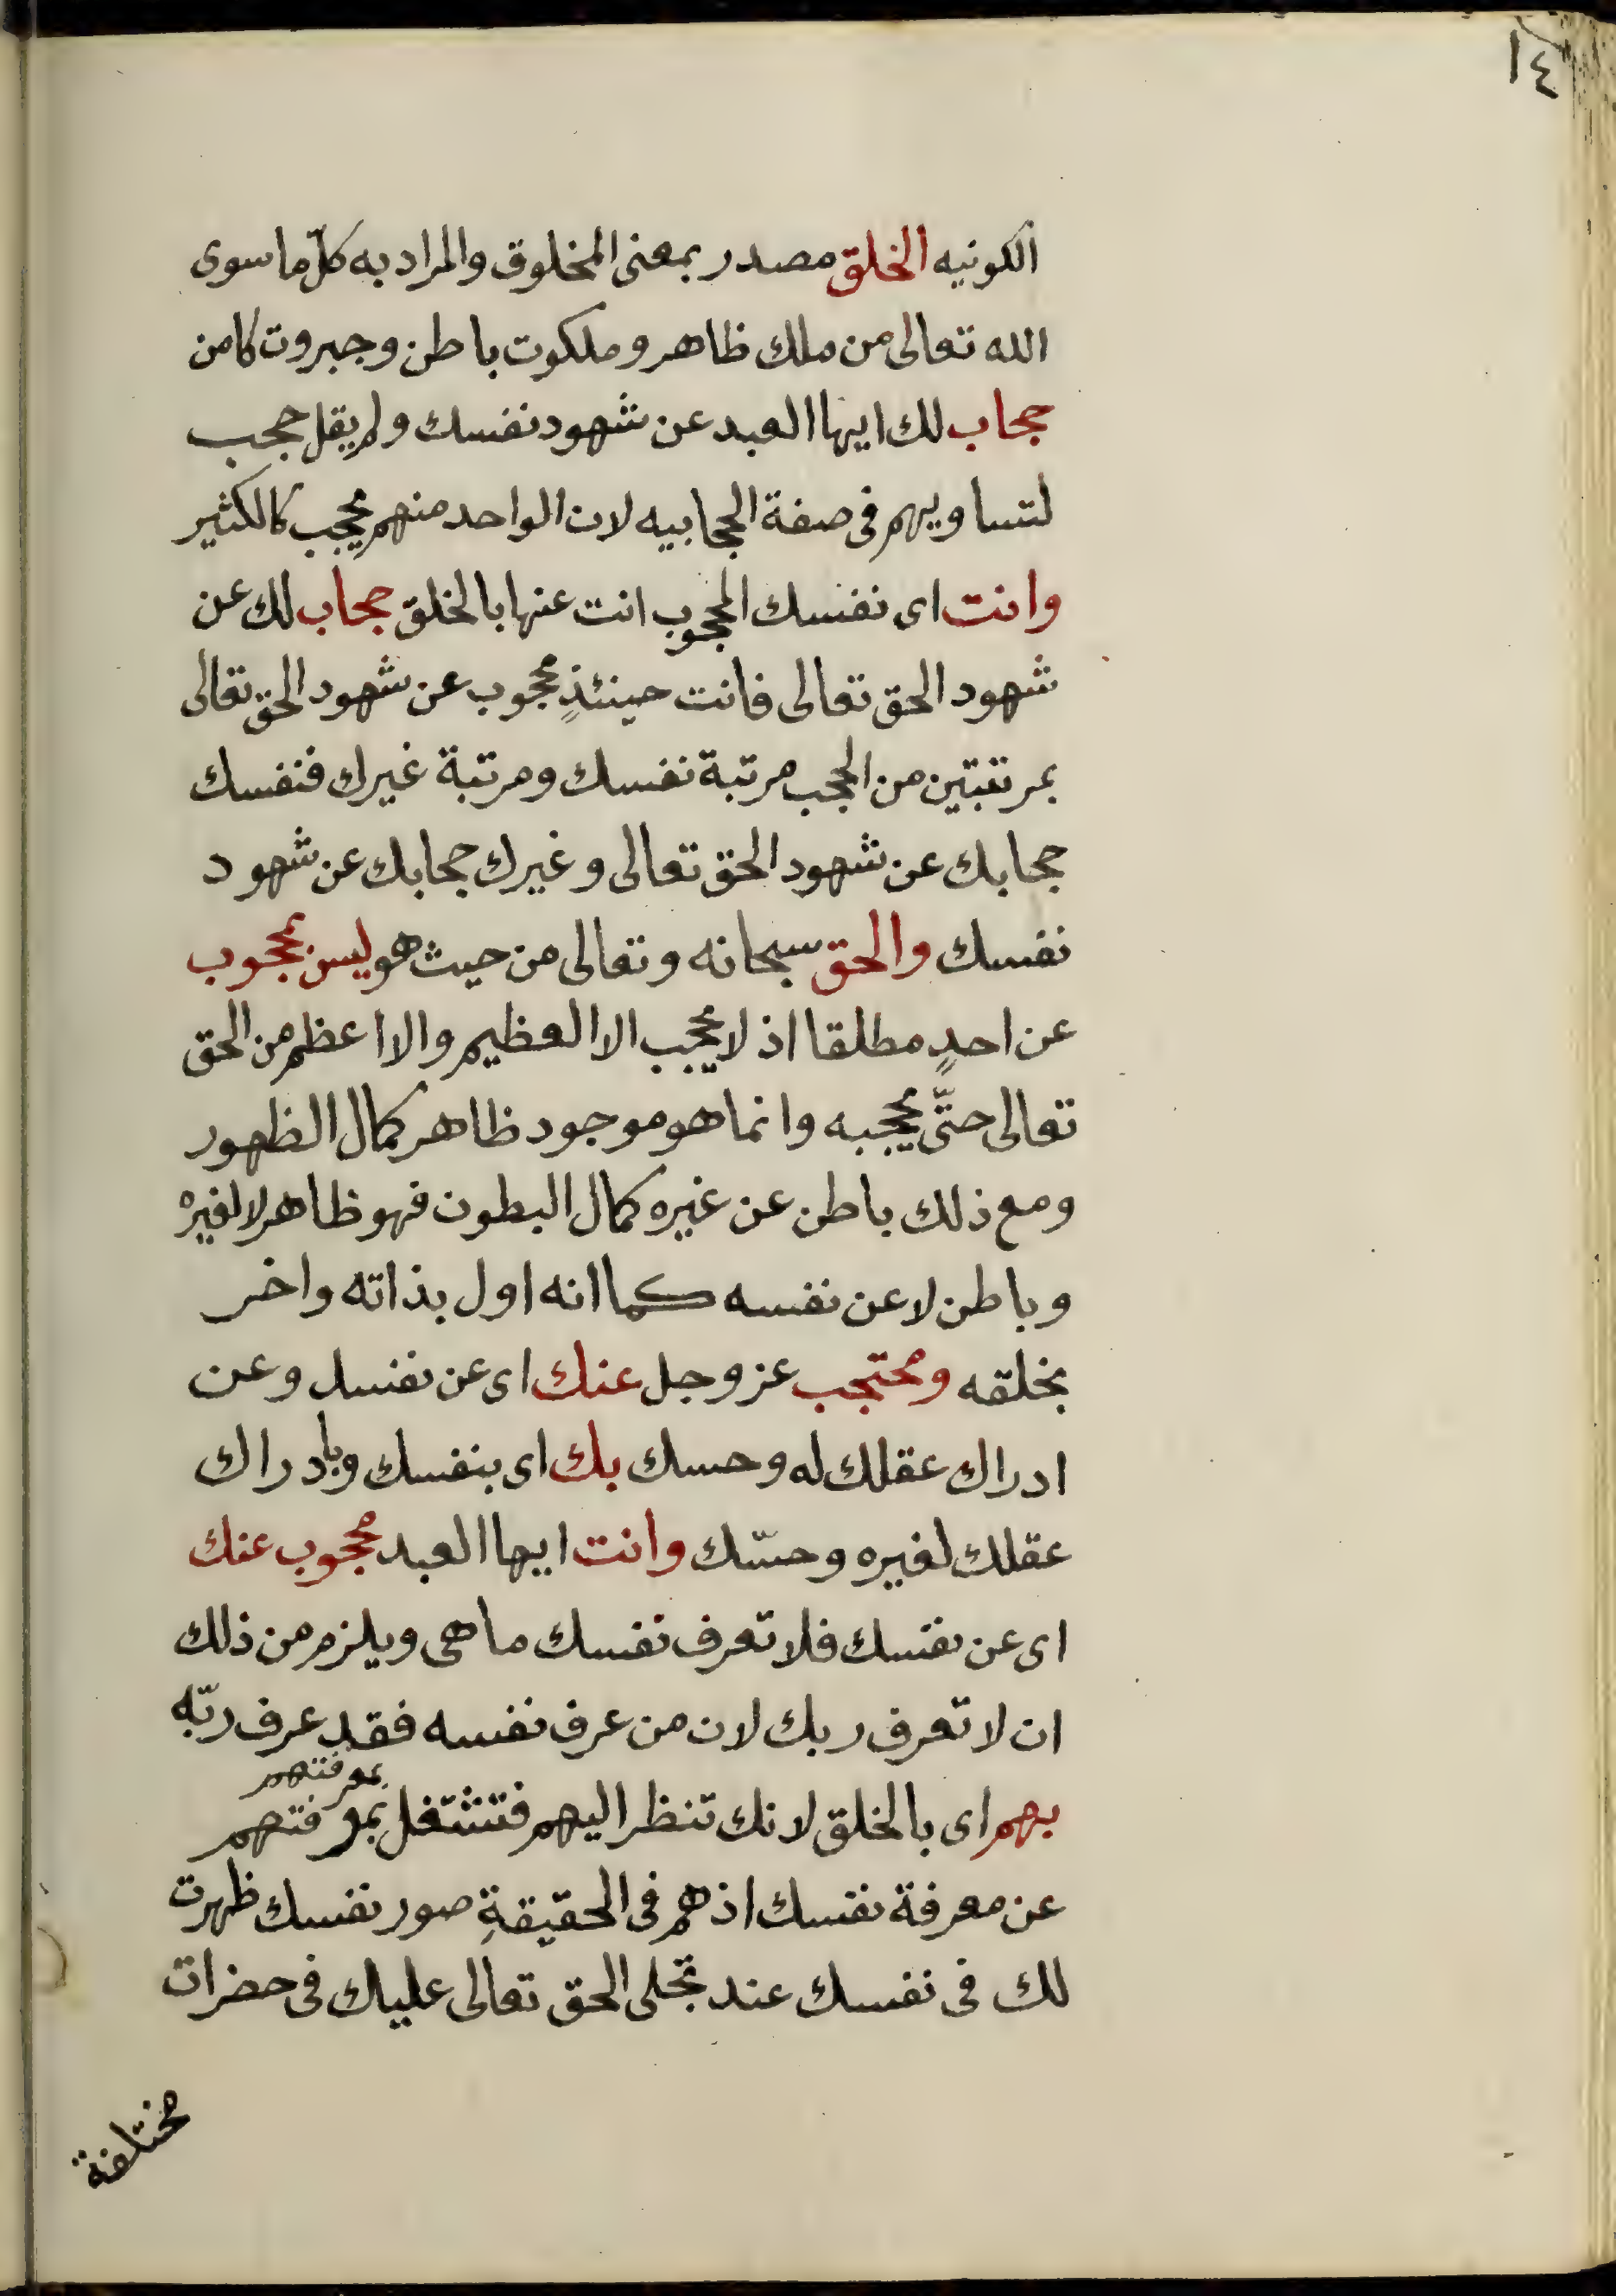 ١٤
الكونيه الخلق مصدر بمعنى المخلوق والمراد به كلّ ما سوى
الله تعالى من ملك ظاهر وملكوت باطن وجبروت كامن
حجاب لك ايها العبد عن شهود نفسك ولم يقل حجب
لتساويهم فى صفة الحجابيه لان الواحد منهم يحجب كالكثير
وانت اى نفسك المحجوب انت عنها بالخلق حجاب لك عن
شهود الحق تعالى فانت حينئذٍ محجوب عن شهود الحق تعالى
بمرتبتين من الحجب مرتبة نفسك ومرتبة غيرك فنفسك
حجابك عن شهود الحق تعالى وغيرك حجابك عن شهود
نفسك والحق سبحانه وتعالى من حيث هو ليس بمحجوب
عن احدٍ مطلقا اذ لا يحجب الا العظيم والا اعظم من الحق
تعالى حتّى يحجبه وانما هو موجود ظاهر كمال الظهور
ومع ذلك باطن عن غيره كمال البطون فهو ظاهر لا لغيره
وباطن لا عن نفسه كما انه اول بذاته واخر
بخلقه ومحتجب عز وجل عنك اى عن نفسك وعن
ادراك عقلك له وحسك بك اى بنفسك وبادراك
عقلك لغيره وحسّك وانت ايها العبد محجوب عنك
اى عن نفسك فلا تعرف نفسك ما هى ويلزم من ذلك
ان لا تعرف ربك لان من عرف نفسه فقد عرف ربّه
بمعرفتهم
بهم اى بالخلق لانك تنظر اليهم فتشتغل بمعرفتهم
عن معرفة نفسك اذ هم فى الحقيقةِ صور نفسك ظهرت
لك فى نفسك عند تجلى الحق تعالى عليك فى حضرات
مختلفة